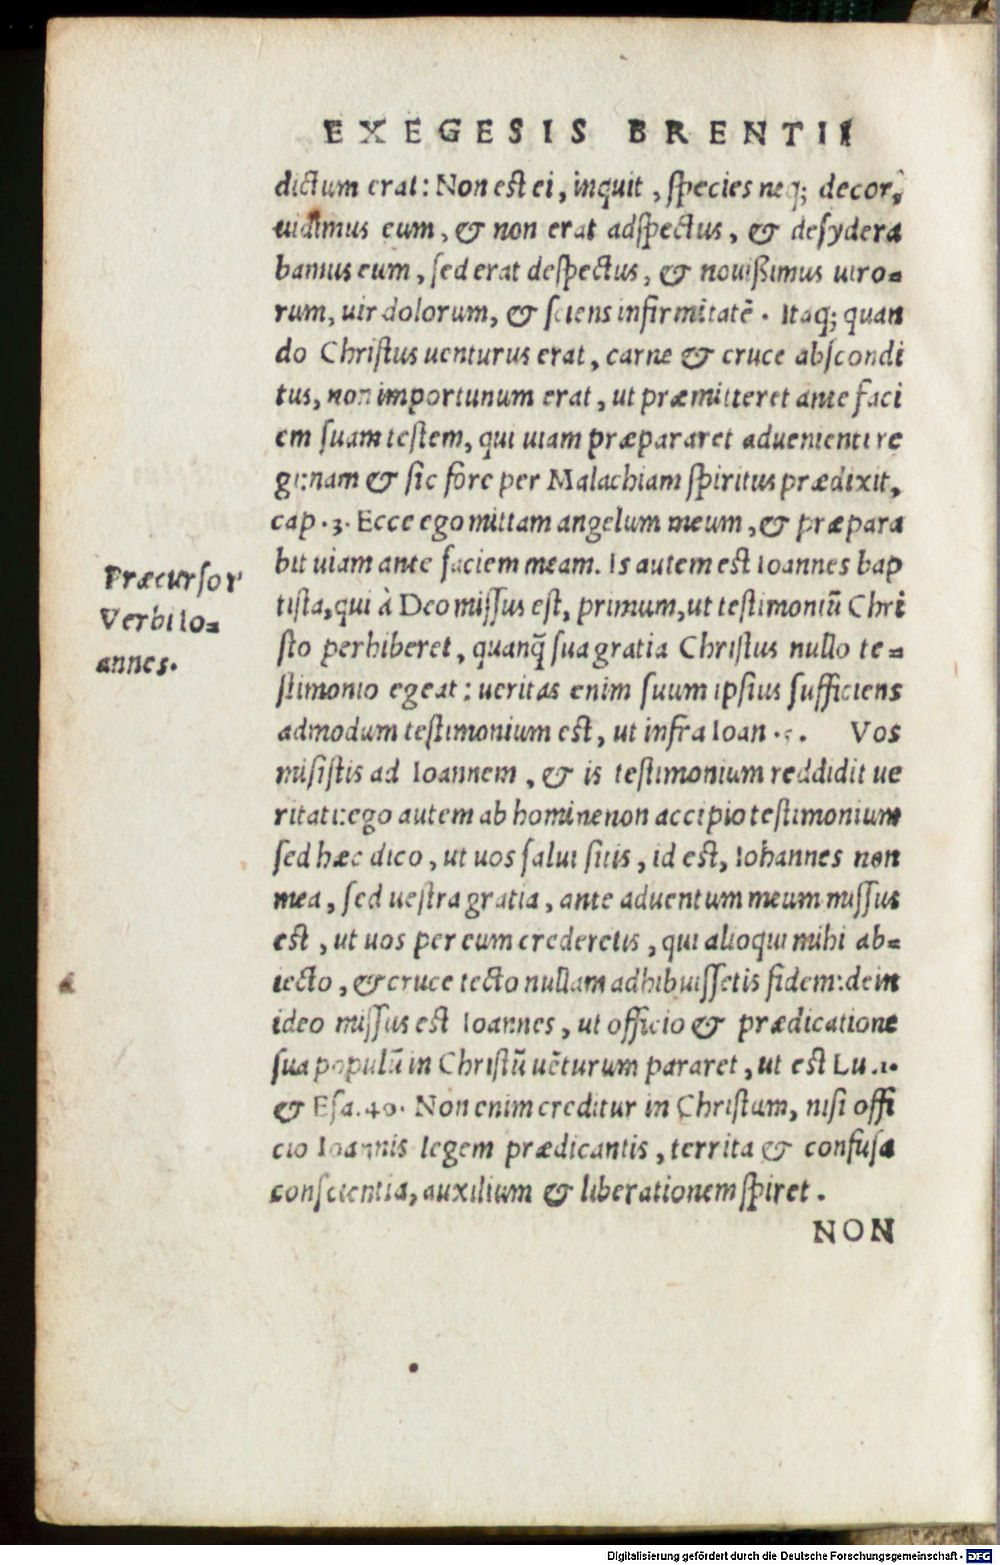 EXEGESIS BRENTII
dictum erat: Non est ei, inquit, species neq; decor,
uidimus eum, & non erat adspectus, & desydera
bamus eum, sed erat despectus, & nouißimus uiro=
rum, uir dolorum, & sciens infirmitatē. Itaq; quan
do Christus uenturus erat, carne & cruce abscondi
tus, non importunum erat, ut præmitteret ante faci
em suam testem, qui uiam præpararet aduenienti re
gi: nam & sic fore per Malachiam spiritus prædixit,
cap. 3. Ecce ego mittam angelum meum, & præpara
bit uiam ante faciem meam. Is autem est Ioannes bap
tista, qui à Deo missus est, primum, ut testimoniū Chri
sto perhiberet, quanq̃ sua gratia Christus nullo te=
stimonio egeat: ueritas enim suum ipsius sufficiens
admodum testimonium est, ut infra Ioan. 5. Vos
misistis ad Ioannem, & is testimonium reddidit ue
ritati: ego autem ab homine non accipio testimonium
sed hæc dico, ut uos salui sitis, id est, Iohannes non
mea, sed uestra gratia, ante aduentum meum missus
est, ut uos per eum crederetis, qui alioqui mihi ab=
iecto, & cruce tecto nullam adhibuissetis fidem: dein
ideo missus est Ioannes, ut officio & prædicatione
sua populū in Christū uēturum pararet, ut est Lu. 1.
& Esa. 40. Non enim creditur in Christum, nisi offi
cio Ioannis legem prædicantis, territa & confusa
conscientia, auxilium & liberationem spiret.
NON
Præcursor
Verbi Io=
annes.
Digitalisierung gefördert durch die Deutsche Forschungsgemeinschaft - DFG